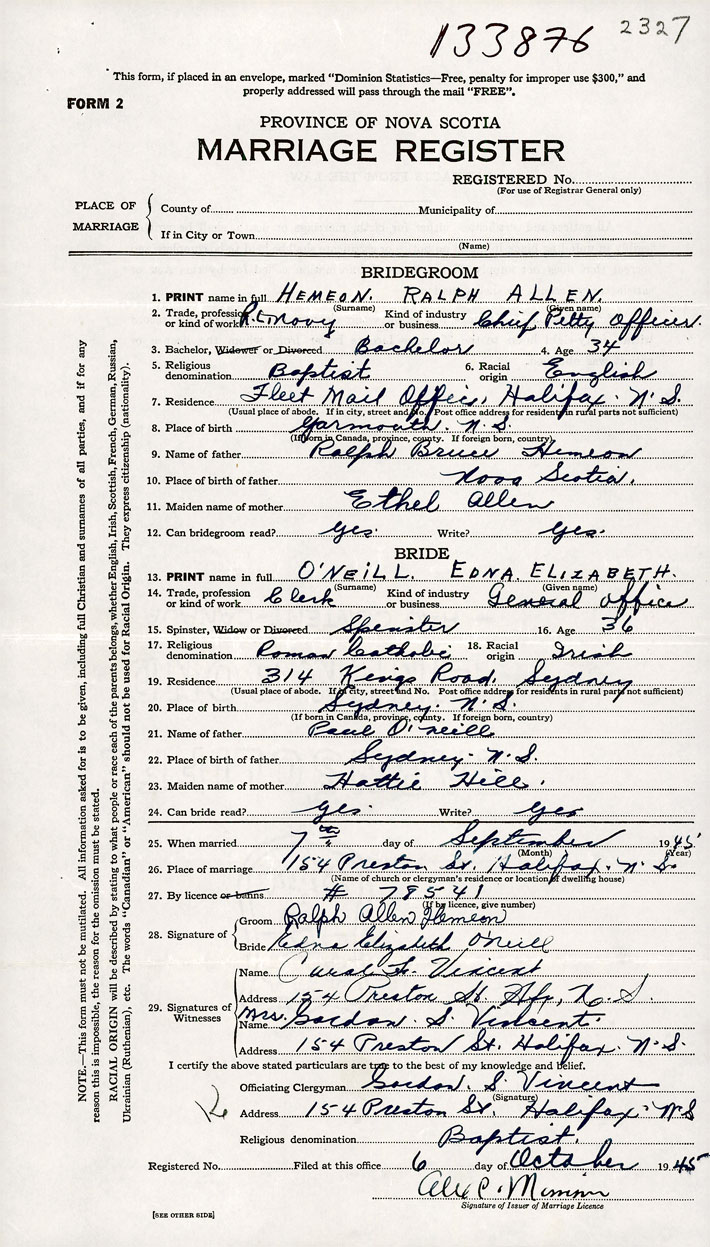 133876 2327
This form, if placed in an envelope, marked "Dominion Statistics—Free, penalty for improper use $300," and
properly addressed will pass through the mail "FREE".
FORM 2
PROVINCE OF NOVA SCOTIA
MARRIAGE REGISTER
REGISTERED No.
(For use of Registrar General only)
PLACE OF MARRIAGE
County of Municipality of
If in City or Town
(Name)
BRIDEGROOM
1. PRINT name in full HEMEON. RALPH ALLEN.
(Surname) (Given name)
2. Trade, profession or kind of work Navy Kind of industry or business Chief Petty Officer.
3. Bachelor, Widower or Divorced Bachelor 4. Age 34
5. Religious denomination Baptist 6. Racial origin English
7. Residence Fleet Mail Office, Halifax. N.S.
(Usual place of abode. If in city, street and No. Post office address for residents in rural parts not sufficient)
8. Place of birth Yarmouth. N.S.
(If born in Canada, province, county. If foreign born, country)
9. Name of father Ralph Bruce Hemeon
10. Place of birth of father Nova Scotia.
11. Maiden name of mother Ethel Allen
12. Can bridegroom read? Yes. Write? Yes.
BRIDE
13. PRINT name in full O'NEILL. EDNA ELIZABETH.
(Surname) (Given name)
14. Trade, profession or kind of work Clerk Kind of industry or business General Office
15. Spinster, Widow or Divorced Spinster 16. Age 36
17. Religious denomination Roman Catholic 18. Racial origin Irish
19. Residence 314 Kings Road, Sydney
(Usual place of abode. If in city, street and No. Post office address for residents in rural parts not sufficient)
20. Place of birth Sydney. N.S.
(If born in Canada, province, county. If foreign born, country)
21. Name of father Paul O'neill
22. Place of birth of father Sydney. N.S.
23. Maiden name of mother Hattie Hill.
24. Can bride read? Yes. Write? Yes
25. When married 7th day of September 1945
(Month) (Year)
26. Place of marriage 154 Preston St. Halifax. N.S.
(Name of church or clergyman's residence or location of dwelling house)
27. By licence or banns # 78541
(If by licence, give number)
28. Signature of
Groom Ralph Allen Hemeon
Bride Edna Elizabeth O'Neill
29. Signatures of Witnesses
Name Vincent
Address 154 Preston St. Hfx, N.S.
Name Mrs. Gordon S. Vincent.
Address 154 Preston St. Halifax. N.S.
I certify the above stated particulars are true to the best of my knowledge and belief.
Officiating Clergyman Gordon. S. Vincent
(Signature)
Address 154 Preston St. Halifax. N.S
Religious denomination Baptist.
Registered No. Filed at this office 6 day of October 1945
Signature of Issuer of Marriage Licence
[SEE OTHER SIDE]
NOTE.—This form must not be mutilated. All information asked for is to be given, including full Christian and surnames of all parties, and if for any
reason this is impossible, the reason for the omission must be stated.
RACIAL ORIGIN will be described by stating to what people or race each of the parents belongs, whether English, Irish, Scottish, French, German, Russian,
Ukrainian (Ruthenian), etc. The words "Canadian" or "American" should not be used for Racial Origin. They express citizenship (nationality).